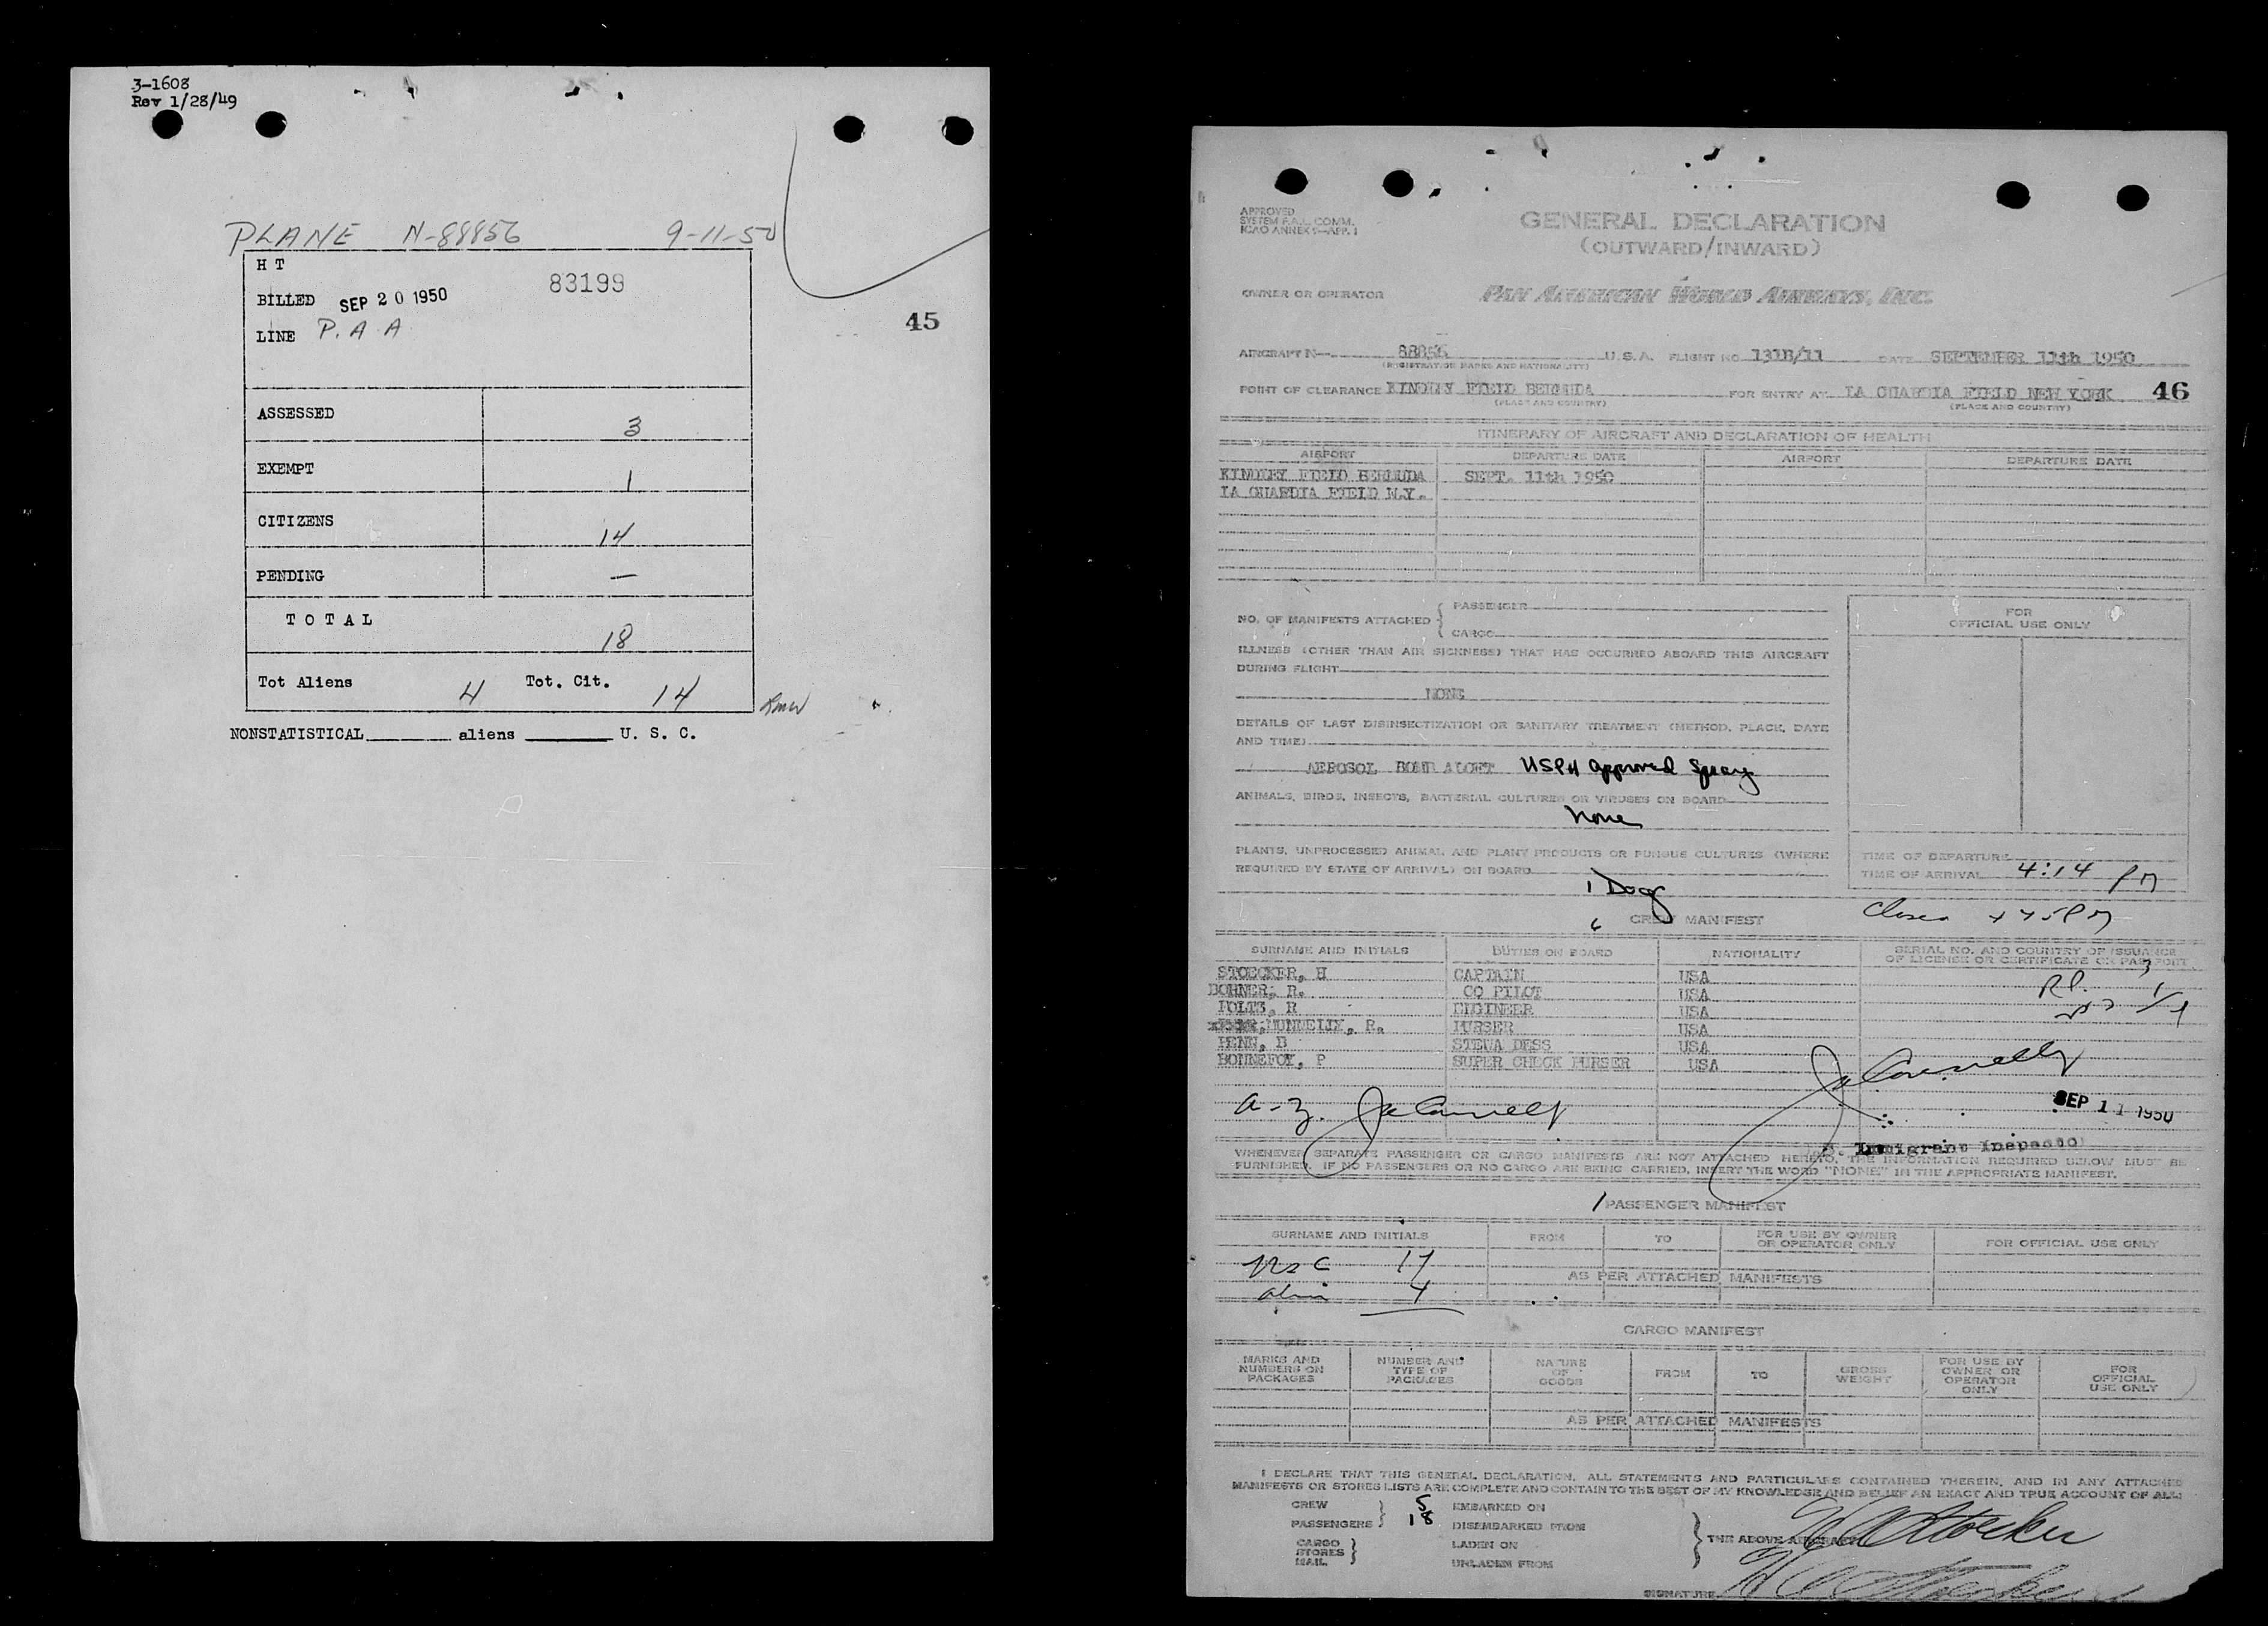 3-1608
Rev 1/28/49
PLANE N-88856 9-11-50
H T
BILLED SEP 20 1950 83199
LINE P. A A
45
ASSESSED 3
EXEMPT 1
CITIZENS 14
PENDING —
T O T A L 18
Tot Aliens 4 Tot. Cit. 14
NONSTATISTICAL aliens U. S. C.
APPROVED
SYSTEM F.A.L. COMM.
ICAO ANNEX 9—APP. 1
GENERAL DECLARATION
(OUTWARD/INWARD)
OWNER OR OPERATOR PAN AMERICAN WORLD AIRWAYS, INC.
AIRCRAFT N— 88856 U.S.A. FLIGHT NO 131B/11 DATE SEPTEMBER 11th 1950
(REGISTRATION MARKS AND NATIONALITY)
POINT OF CLEARANCE KINDLEY FIELD BERMUDA FOR ENTRY AT LA GUARDIA FIELD NEW YORK 46
(PLACE AND COUNTRY) (PLACE AND COUNTRY)
ITINERARY OF AIRCRAFT AND DECLARATION OF HEALTH
AIRPORT DEPARTURE DATE AIRPORT DEPARTURE DATE
KINDLEY FIELD BERMUDA SEPT. 11th 1950
LA GUARDIA FIELD N.Y.
NO. OF MANIFESTS ATTACHED { PASSENGER
CARGO
FOR
OFFICIAL USE ONLY
ILLNESS (OTHER THAN AIR SICKNESS) THAT HAS OCCURRED ABOARD THIS AIRCRAFT
DURING FLIGHT
NONE
DETAILS OF LAST DISINSECTIZATION OR SANITARY TREATMENT (METHOD, PLACE, DATE
AND TIME)
AEROSOL BOMB ALOFT USPH approved Spray
ANIMALS, BIRDS, INSECTS, BACTERIAL CULTURES OR VIRUSES ON BOARD
None
PLANTS, UNPROCESSED ANIMAL AND PLANT PRODUCTS OR FUNGUS CULTURES (WHERE
REQUIRED BY STATE OF ARRIVAL) ON BOARD
1 Dog
TIME OF DEPARTURE
TIME OF ARRIVAL 4:14 PM
6 CREW MANIFEST
SURNAME AND INITIALS DUTIES ON BOARD NATIONALITY SERIAL NO. AND COUNTRY OF ISSUANCE
OF LICENSE OR CERTIFICATE OR PASSPORT
STOECKER, H CAPTAIN USA
BOHNER, R. CO PILOT USA
FOLTZ, R ENGINEER USA
NUNNELLY, R. PURSER USA
PENN, B STEWA DESS USA
BONNEFOY, P SUPER CHECK PURSER USA
SEP 11 1950
Immigrant Inspector
WHENEVER SEPARATE PASSENGER OR CARGO MANIFESTS ARE NOT ATTACHED HERETO, THE INFORMATION REQUIRED BELOW MUST BE
FURNISHED. IF NO PASSENGERS OR NO CARGO ARE BEING CARRIED, INSERT THE WORD "NONE" IN THE APPROPRIATE MANIFEST.
PASSENGER MANIFEST
SURNAME AND INITIALS FROM TO FOR USE BY OWNER
OR OPERATOR ONLY FOR OFFICIAL USE ONLY
AS PER ATTACHED MANIFESTS
CARGO MANIFEST
MARKS AND
NUMBERS ON
PACKAGES NUMBER AND
TYPE OF
PACKAGES NATURE
OF
GOODS FROM TO GROSS
WEIGHT FOR USE BY
OWNER OR
OPERATOR
ONLY FOR
OFFICIAL
USE ONLY
AS PER ATTACHED MANIFESTS
I DECLARE THAT THIS GENERAL DECLARATION, ALL STATEMENTS AND PARTICULARS CONTAINED THEREIN, AND IN ANY ATTACHED
MANIFESTS OR STORES LISTS ARE COMPLETE AND CONTAIN TO THE BEST OF MY KNOWLEDGE AND BELIEF AN EXACT AND TRUE ACCOUNT OF ALL:
CREW 5 EMBARKED ON
PASSENGERS 18 DISEMBARKED FROM
THE ABOVE AIRCRAFT
CARGO
STORES
MAIL
LADEN ON
UNLADEN FROM
SIGNATURE